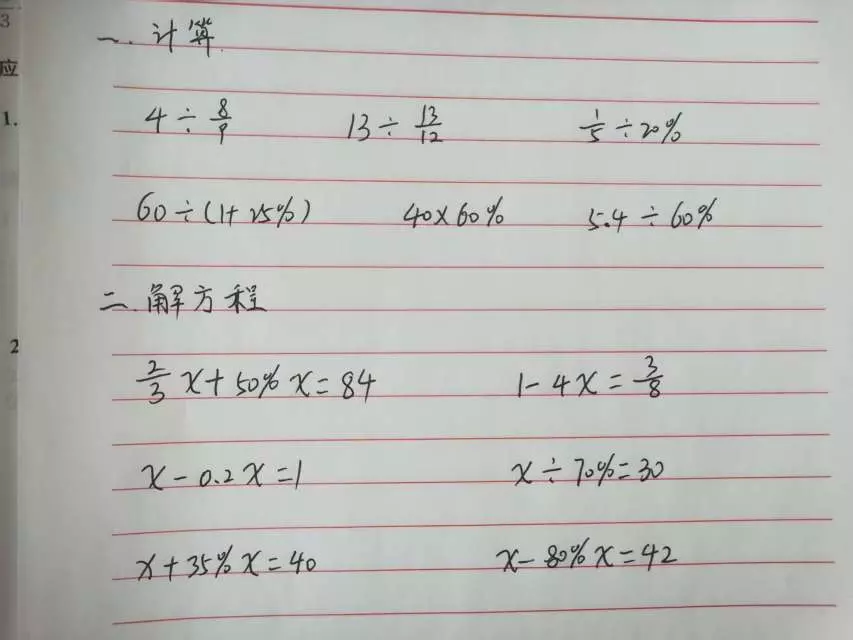 3
应
1.
2
一. 计算
4 ÷ 8/9 13 ÷ 13/12 1/5 ÷ 20%
60 ÷ (1+25%) 40×60% 5.4 ÷ 60%
二. 解方程
2/3 x + 50% x = 84 1 - 4x = 3/8
x - 0.2x = 1 x ÷ 70% = 30
x + 35% x = 40 x - 80% x = 42